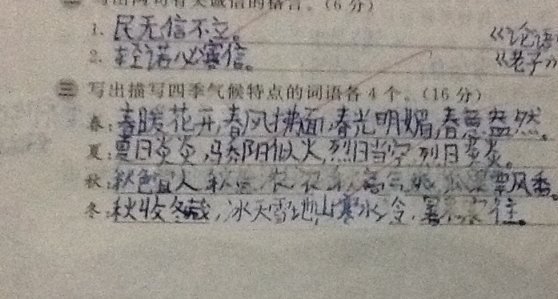 写出两句有关诚信的格言。(6分)
1. 民无信不立。 《论语
2. 轻诺必寡信。 《老子》
三 写出描写四季气候特点的词语各4个。(16分)
春:春暖花开,春风拂面,春光明媚,春意盎然。
夏:夏日炎炎,骄阳似火,烈日当空,烈日炎炎。
秋:秋色宜人 秋 高气
冬:秋收冬藏,冰天雪地,山寒水冷,暑 往。